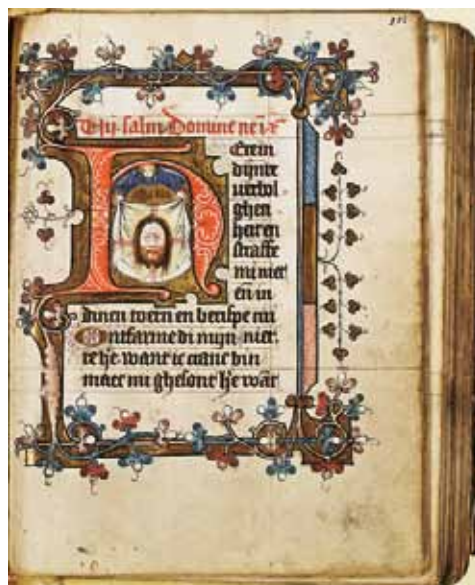 salm Domine ne
HEre in
dijnre
verbol
ghen
heit en
straffe
mi niet
en in
dinen toern en berispe mi
Ontfarme di mijn niet.
he want ic cranc bin
make mi ghesont he want